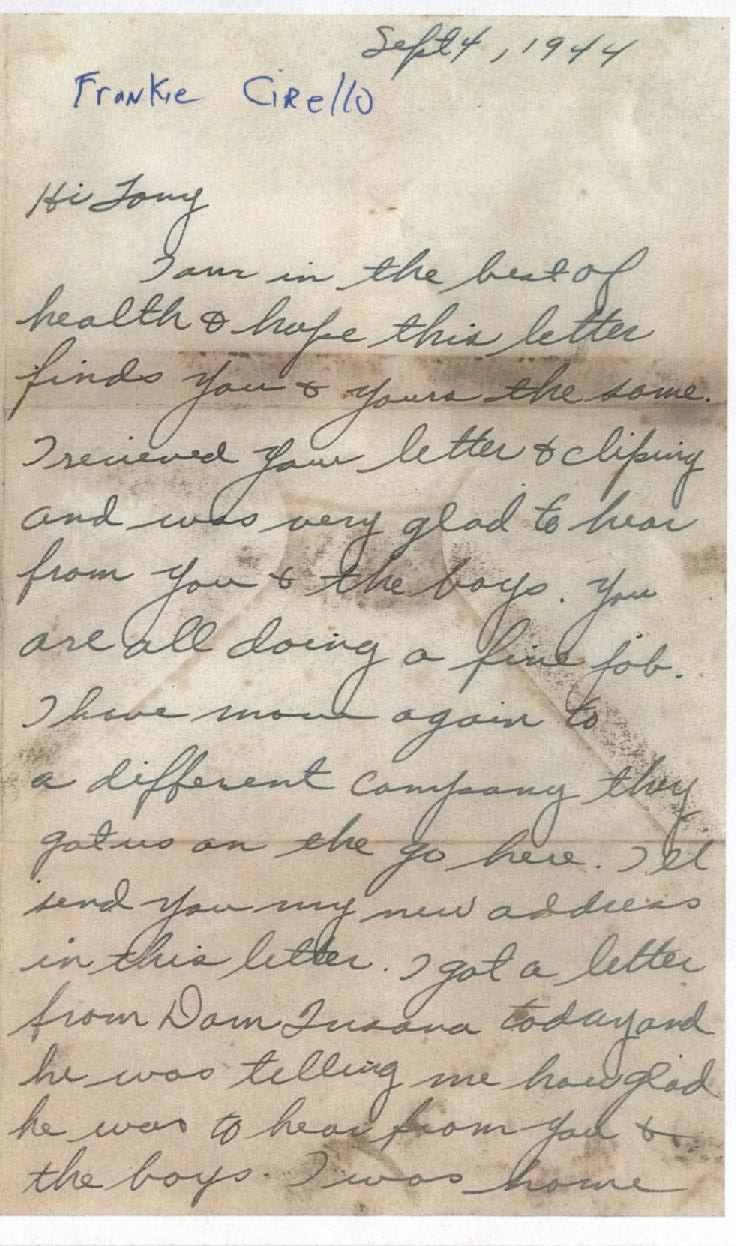 Sept 4, 1944
Frankie Cirello
Hi Tony
I am in the best of
health & hope this letter
finds you & yours the same.
I recieved your letter & cliping
and was very glad to hear
from you & the boys. You
are all doing a fine job.
I have move again to
a different company they
got us on the go here. I'll
send you my new address
in this letter. I got a letter
from Dom today and
he was telling me how glad
he was to hear from you &
the boys. I was home